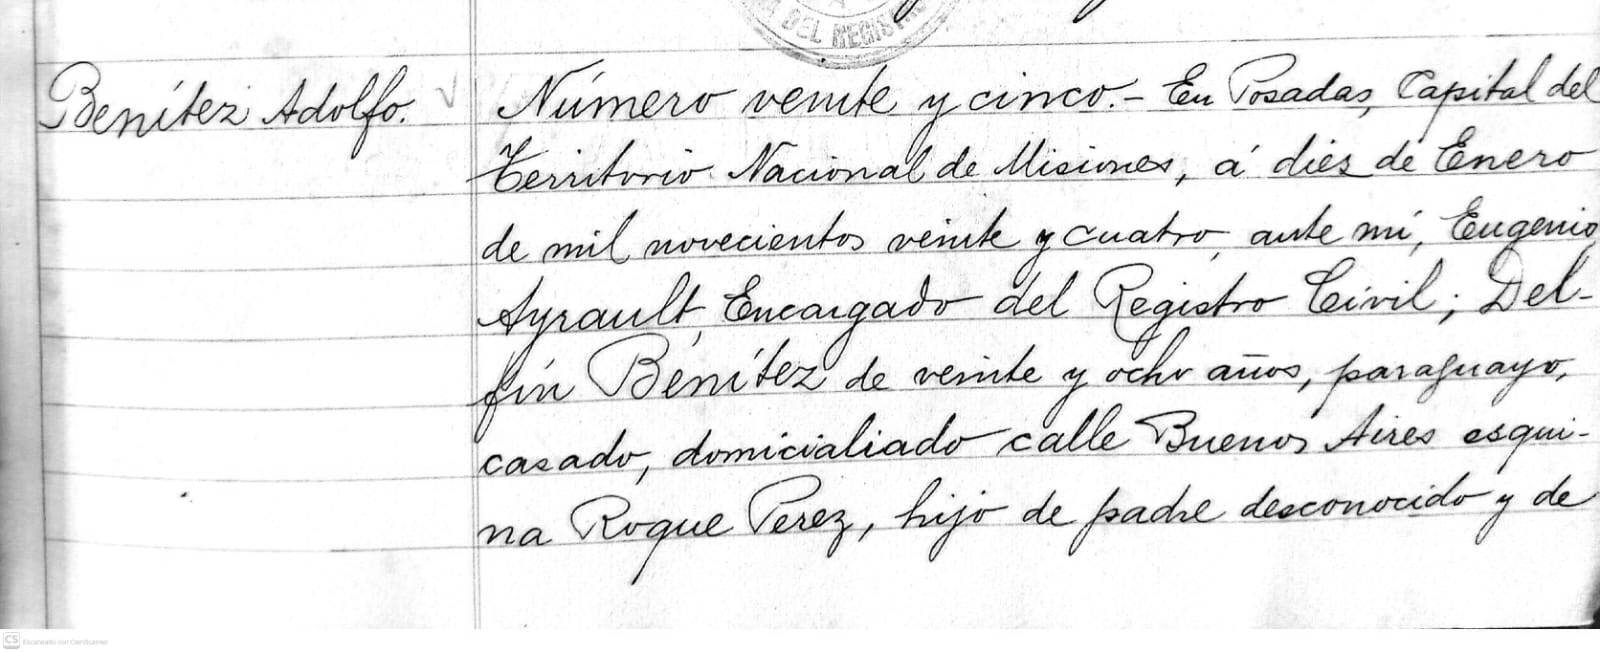 A DEL REGIS
Benítez Adolfo.
Número veinte y cinco.- En Posadas, Capital del
Territorio Nacional de Misiones, á diez de Enero
de mil novecientos veinte y cuatro, ante mí, Eugenio
Ayrault, Encargado del Registro Civil; Del-
fín Benítez de veinte y ocho años, paraguayo,
casado, domicialiado calle Buenos Aires esqui-
na Roque Perez, hijo de padre desconocido y de
CS Escaneado con CamScanner